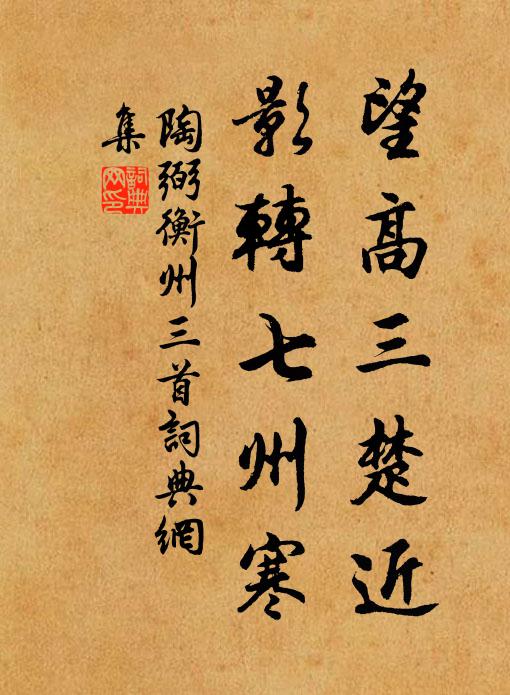 望高三楚近
影轉七州寒
陶弼衡州三首詞典網
集
詞典
網印